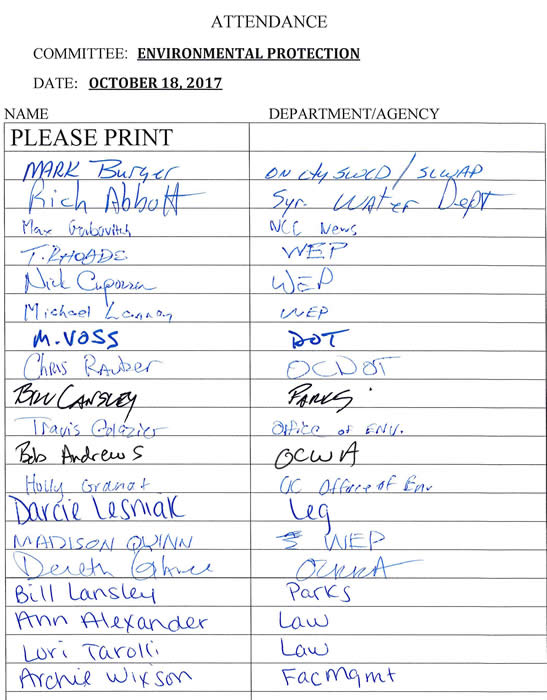 ATTENDANCE
COMMITTEE: ENVIRONMENTAL PROTECTION
DATE: OCTOBER 18, 2017
NAME DEPARTMENT/AGENCY
PLEASE PRINT
MARK Burger ON cty SWCD / SLWAP
Rich Abbott Syr. Water Dept
Max Gorbovitch NCC News
T. RHOADE WEP
Nick WEP
Michael Lannon WEP
M. VOSS DOT
Chris Rauber OCDOT
Bill LANSLEY PARKS
Travis Glazier Office of ENV.
Bob Andrews OCWA
Holly Granat OC Office of Env
Darcie Lesniak Leg
MADISON QUINN WEP
Dereth Glance OCRRA
Bill Lansley Parks
Ann Alexander Law
Lori Tarolli Law
Archie Wixson Facmgmt